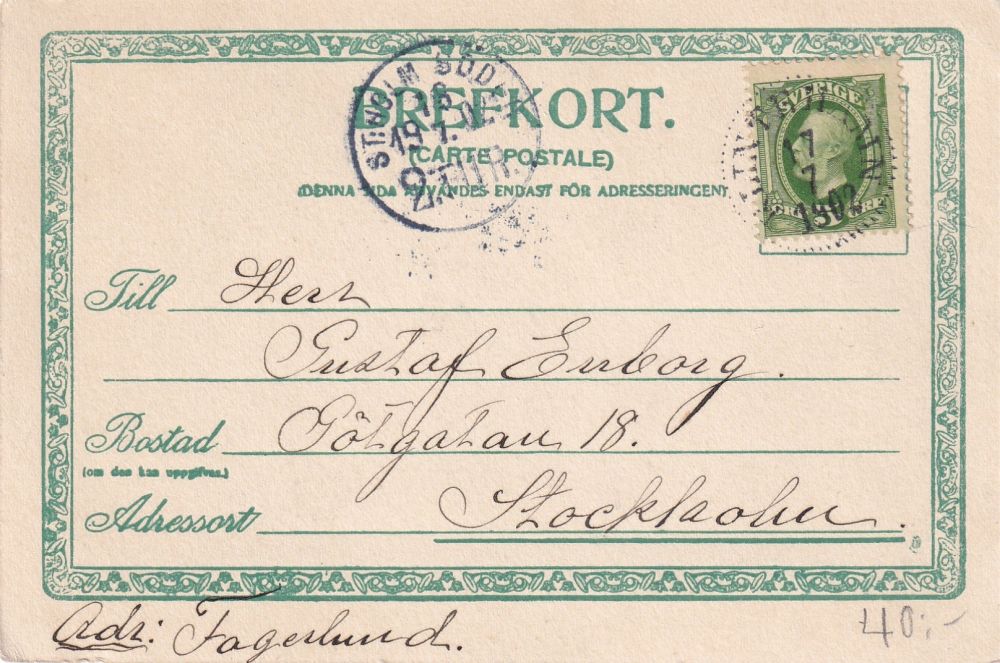 BREFKORT.
(CARTE POSTALE)
(DENNA SIDA ANVÄNDES ENDAST FÖR ADRESSERINGEN)
SVERIGE
17
7
1902
18
19 7
2. TUR.
Till Herr
Gustaf Enborg.
Bostad Götgatan 18.
(om den kan uppgifvas.)
Adressort Stockholm.
Adr: Fagerlund.
40:-